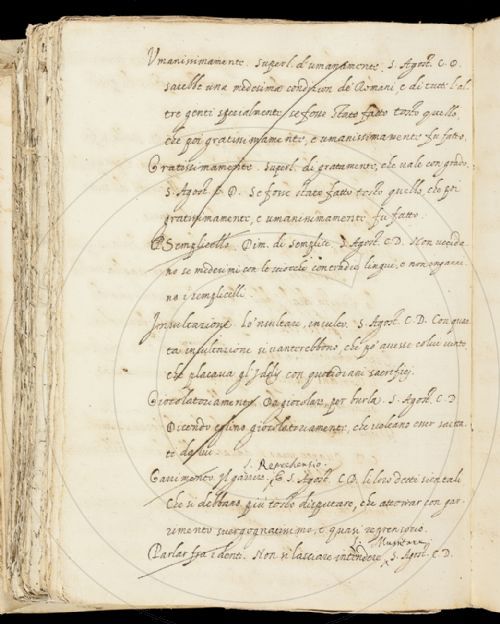 Umanissimamente. Superl. d'umanamente. S. Agost. C. D.
sarebbe una medesima condizion de' Romani, e di tutte l'al-
tre genti specialmente se fosse stato fatto tosto quello,
che poi gratissimamente, e umanissimamente fu fatto.
Gratissimamente. Superl. di gratamente, che vale con grado.
S. Agost. C. D. Se fosse stato fatto tosto quello, che poi
gratissimamente, e umanissimamente fu fatto.
Semplicello. Dim. di Semplice. S. Agost. C. D. Non uccida-
no se medesimi con le contradie lingue, e non inganni-
no i semplicelli.
Insultazione. Lo 'nsultare, insulto. S. Agost. C. D. Con quan-
ta insultazione si vanterebbono, che po' avesse colui vinto
che placava gl'Idoli con quotidiani sacrifizj.
Giocolatoriamente. Da giocolare, per burla. S. Agost. C. D.
Dicendo eglino giocolatoriamente, che voleano esser saetta-
ti da lui.
S. Reprehensio.
Garrimento. Il garrire. S. Agost. C. D. li loro detti sien tali
Che si debbano più tosto dispettare, che attorniar con gar-
rimento svergognatissimo, e quasi reprensorio.
S. Mussitare
Parlar fra i denti. Non si lasciare intendere. S. Agost. C. D.